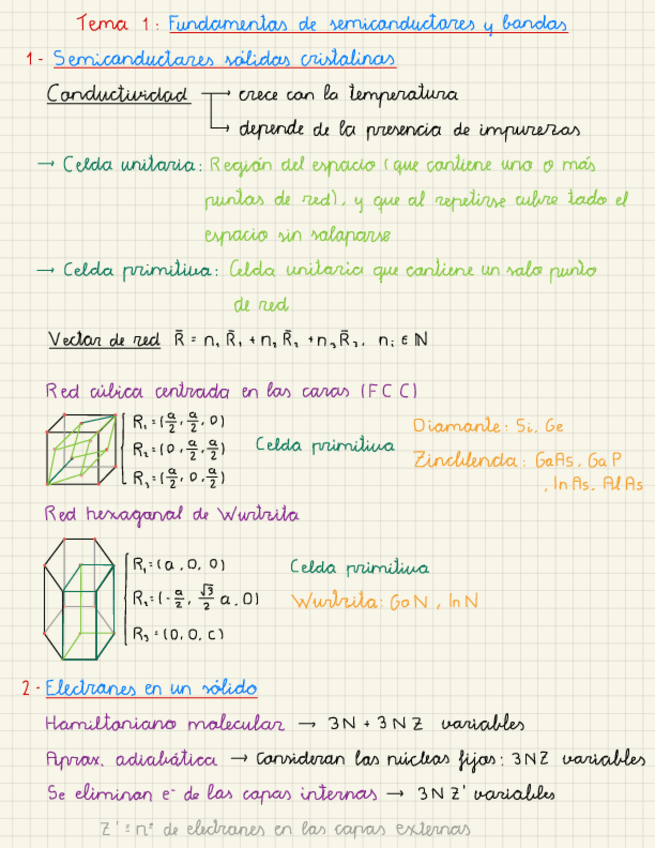 Tema 1: Fundamentos de semiconductores y bandas
1- Semiconductores sólidos cristalinos
Conductividad → crece con la temperatura
→ depende de la presencia de impurezas
→ Celda unitaria: Región del espacio (que contiene uno o más
puntos de red), y que al repetirse cubre todo el
espacio sin solaparse
→ Celda primitiva: Celda unitaria que contiene un solo punto
de red
Vector de red R̄ = n₁ R̄₁ + n₂ R̄₂ + n₃ R̄₃, nᵢ ∈ ℕ
Red cúbica centrada en las caras (FCC)
R₁=(a/2, a/2, 0)
R₂=(0, a/2, a/2)
R₃=(a/2, 0, a/2)
Celda primitiva
Diamante: Si, Ge
Zincblenda: GaAs, GaP
, InAs, AlAs
Red hexagonal de Wurtzita
R₁=(a, 0, 0)
R₂=(-a/2, √3/2 a, 0)
R₃=(0, 0, c)
Celda primitiva
Wurtzita: GaN, InN
2- Electrones en un sólido
Hamiltoniano molecular → 3N + 3NZ variables
Aprox. adiabática → Consideran los núcleos fijos: 3NZ variables
Se eliminan e⁻ de las capas internas → 3NZ' variables
Z' = nº de electrones en las capas externas